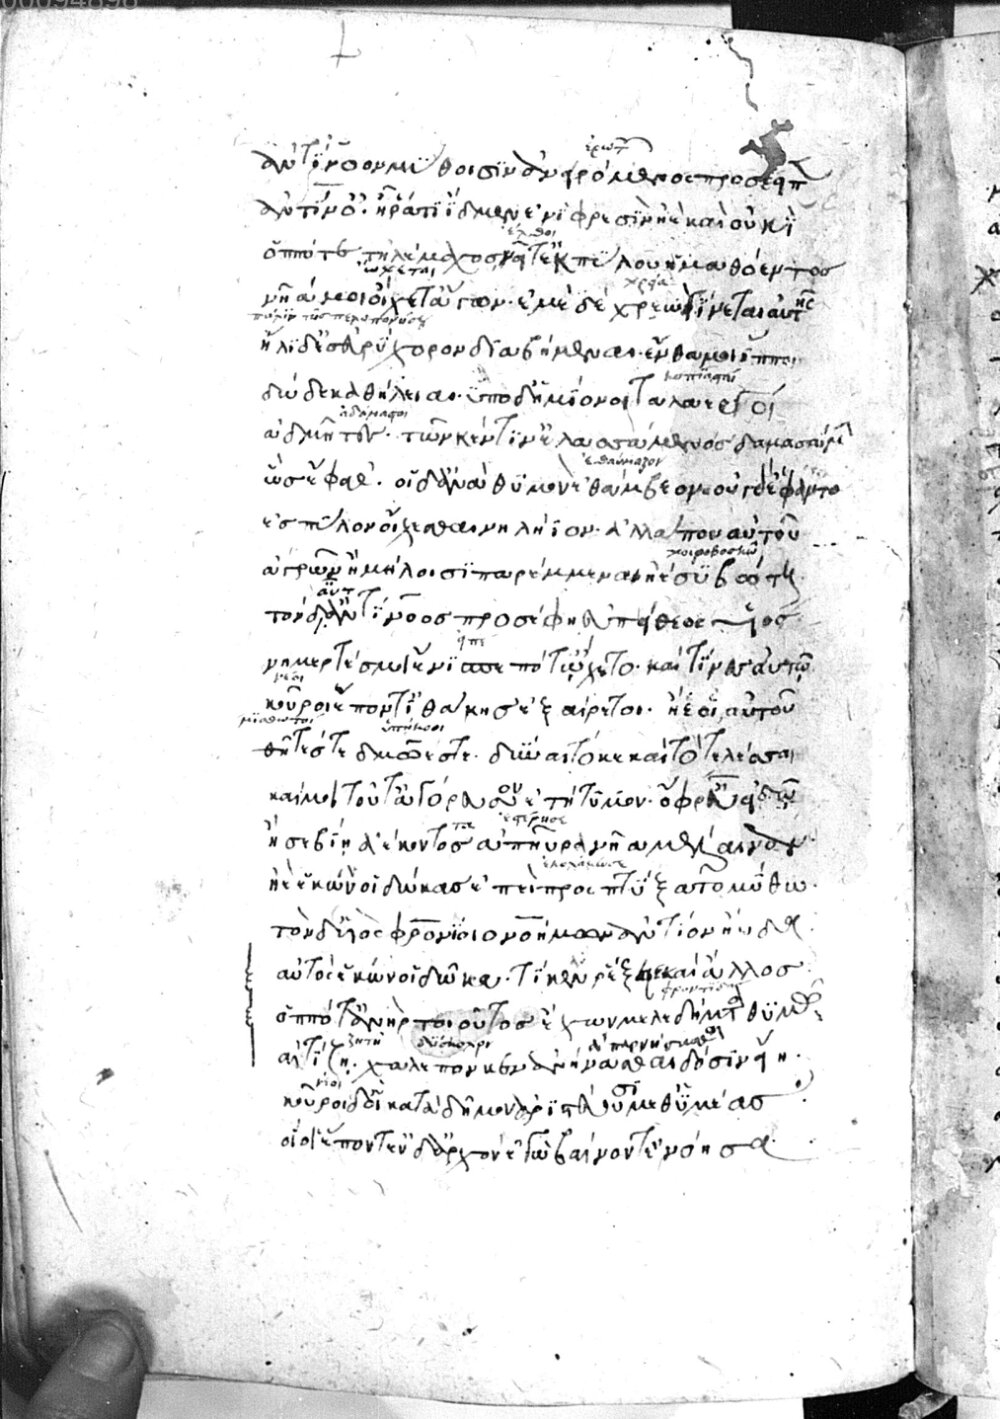 00094898
ἐρωτ
ἀντίνοον μύθοισιν ἀνειρόμενος προσέειπ
ἀντίνο. ἦ ῥά τι ἴδμεν ἐνὶ φρεσὶν ἠὲ καὶ οὐκὶ
ἔλθοι
ὁππότε τηλέμαχος νεῖτ ἐκ πύλου ἠμαθόεντος
ᾤχεται χρεία
νῆα μοι οἴχετ ἄγων. ἐμὲ δὲ χρεὼ γίνεται αὐτῆς
πόλιν τῆς πελοποννήσου
ἤλιδ ἐς εὐρύχορον διαβήμεναι. ἔνθα μοι ἵπποι
δώδεκα θήλειαι. ὑπὸ δ ἡμίονοι ταλαεργοί
ἀδάμαστοι
ἀδμῆτες. τῶν κέν τιν ἐλασσάμενος δαμασαίμην
ἐθαύμαζον
ὣς ἔφαθ. οἱ δ ἀνὰ θυμὸν ἐθάμβεον. οὐ γὰρ ἔφαντο
ἐς πύλον οἴχεσθαι νηλήϊον. ἀλλά που αὐτοῦ
χοιροβοσκῶ
ἀγρῶν ἢ μήλοισι παρέμμεναι ἠὲ συβώτῃ
τὸν δ αὖτ ἀντίνοος προσέφη εὐπείθεος υἱός
νημερτές μοι ἔνισπε πότ ᾤχετο. καὶ τίνες αὐτῷ
νέοι
κοῦροι ἕποντ ἰθάκης ἐξαίρετοι. ἢ ἑοὶ αὐτοῦ
μισθωτοί
θῆτές τε δμῶές τε. δύναιτό κε καὶ τὸ τελέσσαι
καί μοι τοῦτ ἀγόρευσον ἐτήτυμον. ὄφρ εὖ εἰδῶ
ἤ σε βίῃ ἀέκοντος ἀπηύρα νῆα μέλαιναν
ἠὲ ἑκών οἱ δῶκας ἐπεὶ προσπτύξατο μύθῳ.
τὸν δ υἱὸς φρονίοιο νοήμων ἀντίον ηὔδα
αὐτὸς ἑκών οἱ δῶκα. τί κεν ῥέξειε καὶ ἄλλος
φροντίδας
ὁππότ ἀνὴρ τοιοῦτος ἔχων μελεδήματα θυμῷ
ζητῇ δύσκολον
αἰτίζῃ. χαλεπόν κεν ἀνήνασθαι δόσιν εἴη.
νέοι
κοῦροι δ οἳ κατὰ δῆμον ἀριστεύουσι μεθ ἡμέας
οἵ οἱ ἕποντ ἐν δ ἀρχὸν ἐγὼ βαίνοντ ἐνόησα